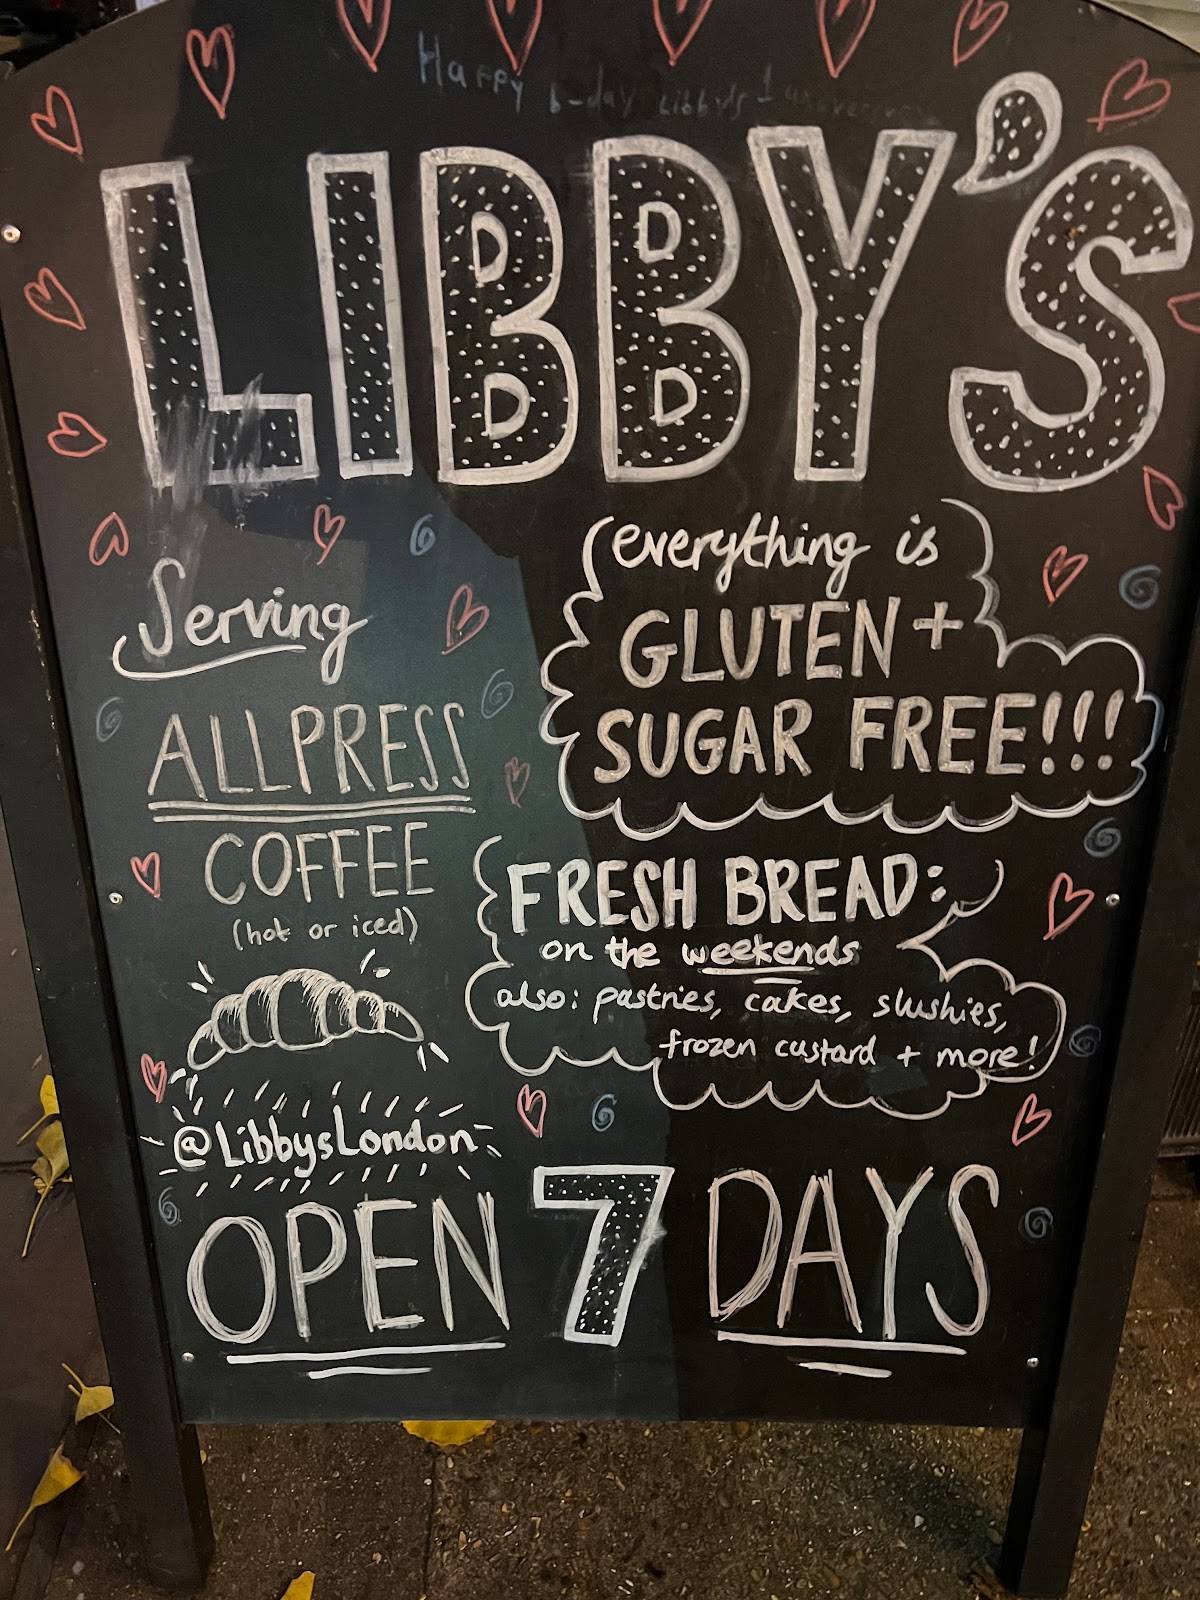 Happy b-day Libby's 1 anniversary
LIBBY'S
Serving
ALLPRESS
COFFEE
(hot or iced)
@LibbysLondon
everything is
GLUTEN +
SUGAR FREE!!!
FRESH BREAD:
on the weekends
also: pastries, cakes, slushies,
frozen custard + more!
OPEN 7 DAYS